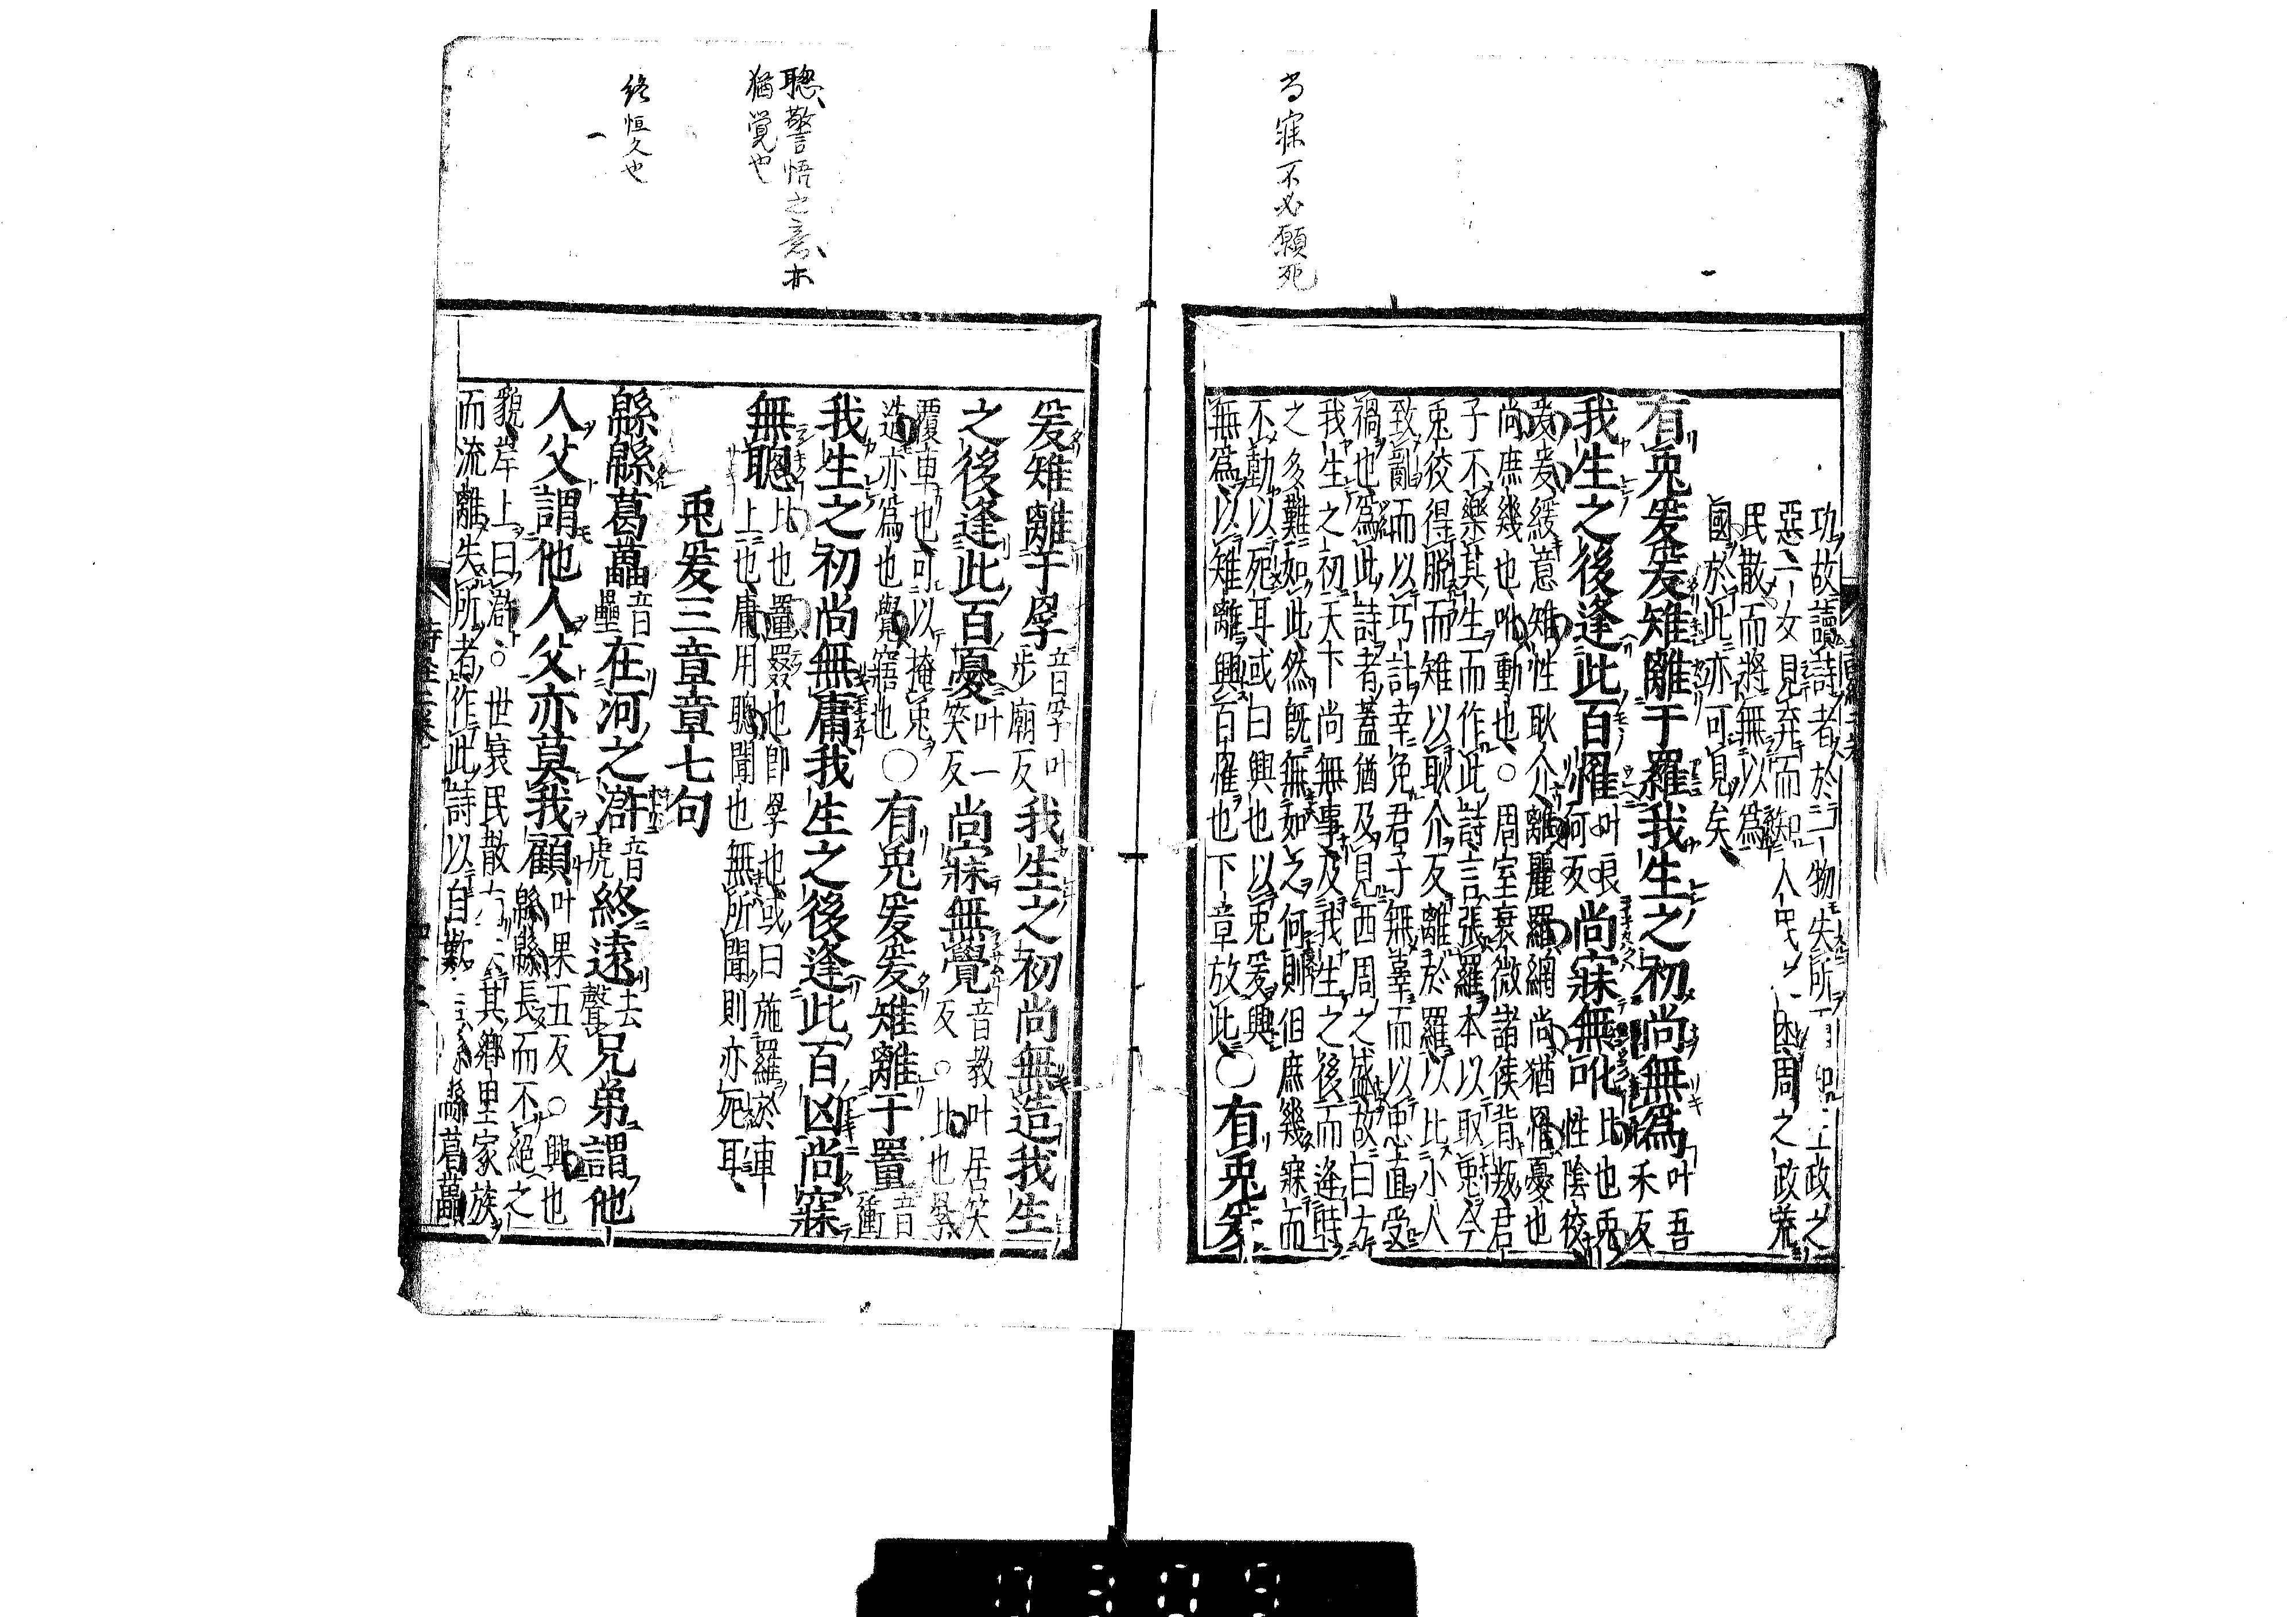 尚寐不必願死
功故讀詩者於一物失所而知王政之
惡一女見弃而知人民之困周之政荒
民散而將無以爲
國於此亦可見矣
有兎爰爰雉離于羅我生之初尚無爲叶吾禾反
我生之後逢此百罹叶良何反尚寐無吪比也兎性陰狡
爰爰緩意雉性耿介離麗羅網尚猶罹憂也
尚庶幾也吪動也○周室衰微諸侯背叛君
子不樂其生而作此詩言張羅本以取兎今
兎狡得脱而雉以耿介反離於羅以比小人
致亂而以巧計幸免君子無辜而以忠直受
禍也爲此詩者蓋猶及見西周之盛故曰方
我生之初天下尚無事及我生之後而逢時
之多難如此然既無如之何則但庶幾寐而
不動以死耳或曰興也以兎爰興
無爲以雉離興百罹也下章放此○有兎爰
聰警悟之意亦
猶覺也
終恒久也
爰雉離于罦音孚叶步廟反我生之初尚無造我生
之後逢此百憂叶一笑反尚寐無覺音教叶居笑反○比也罦
覆車也可以掩兎
造亦爲也覺寤也○有兎爰爰雉離于罿音衝
我生之初尚無庸我生之後逢此百凶尚寐
無聰比也罿罬也卽罦也或曰施羅於車
上也庸用聰聞也無所聞則亦死耳
兎爰三章章七句
緜緜葛藟音壘在河之滸音虎終遠去聲兄弟謂他
人父謂他人父亦莫我顧叶果五反○興也緜緜長而不絕之
貌岸上曰滸○世衰民散有去其鄉里家族
而流離失所者作此詩以自歎言緜緜葛藟